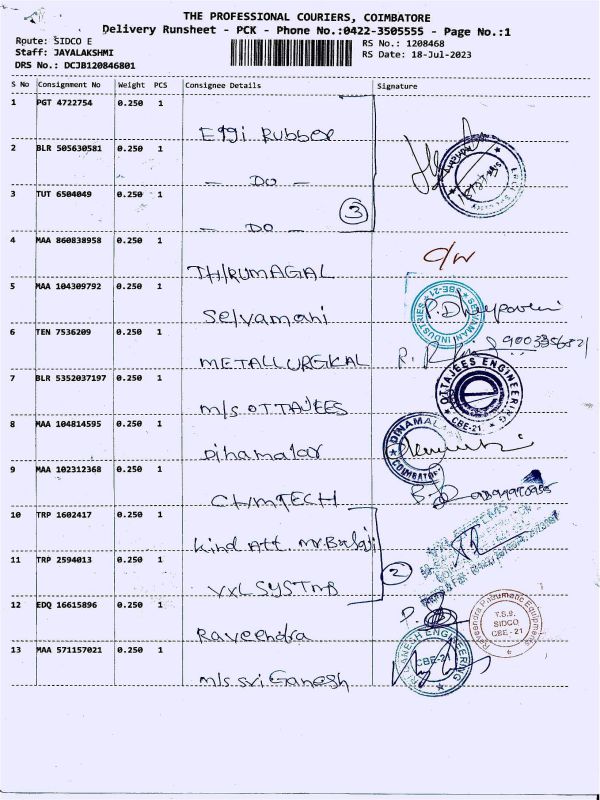 THE PROFESSIONAL COURIERS, COIMBATORE
Delivery Runsheet - PCK - Phone No.:0422-3505555 - Page No.:1
Route: SIDCO E
Staff: JAYALAKSHMI
DRS No.: DCJB120846801
RS No.: 1208468
RS Date: 18-Jul-2023
S No Consignment No Weight PCS Consignee Details Signature
1 PGT 4722754 0.250 1
Eggi Rubber
2 BLR 505630581 0.250 1
- DO -
3 TUT 6504049 0.250 1
- DO -
3
4 MAA 860838958 0.250 1
THIRUMAGAL C/W
5 MAA 104309792 0.250 1
Selvamani
SELVAMANI INDUSTRIES CBE-21
6 TEN 7536209 0.250 1
METALLURGIKAL
7 BLR 5352037197 0.250 1
m/s. OTTAJEES
OTTAJEES ENGINEERING CBE-21
8 MAA 104814595 0.250 1
Dinamalar
DINAMALAR COIMBATORE
9 MAA 102312368 0.250 1
CHMTECH
10 TRP 1602417 0.250 1
Kind Att. Mr. Balaji
11 TRP 2594013 0.250 1
2
12 EDQ 16615896 0.250 1
Raveendra
Raveendra Pneumatic Equipments T.S.9. SIDCO CBE - 21
13 MAA 571157021 0.250 1
m/s Sri Ganesh
SRI GANESH ENGINEERING CBE-21